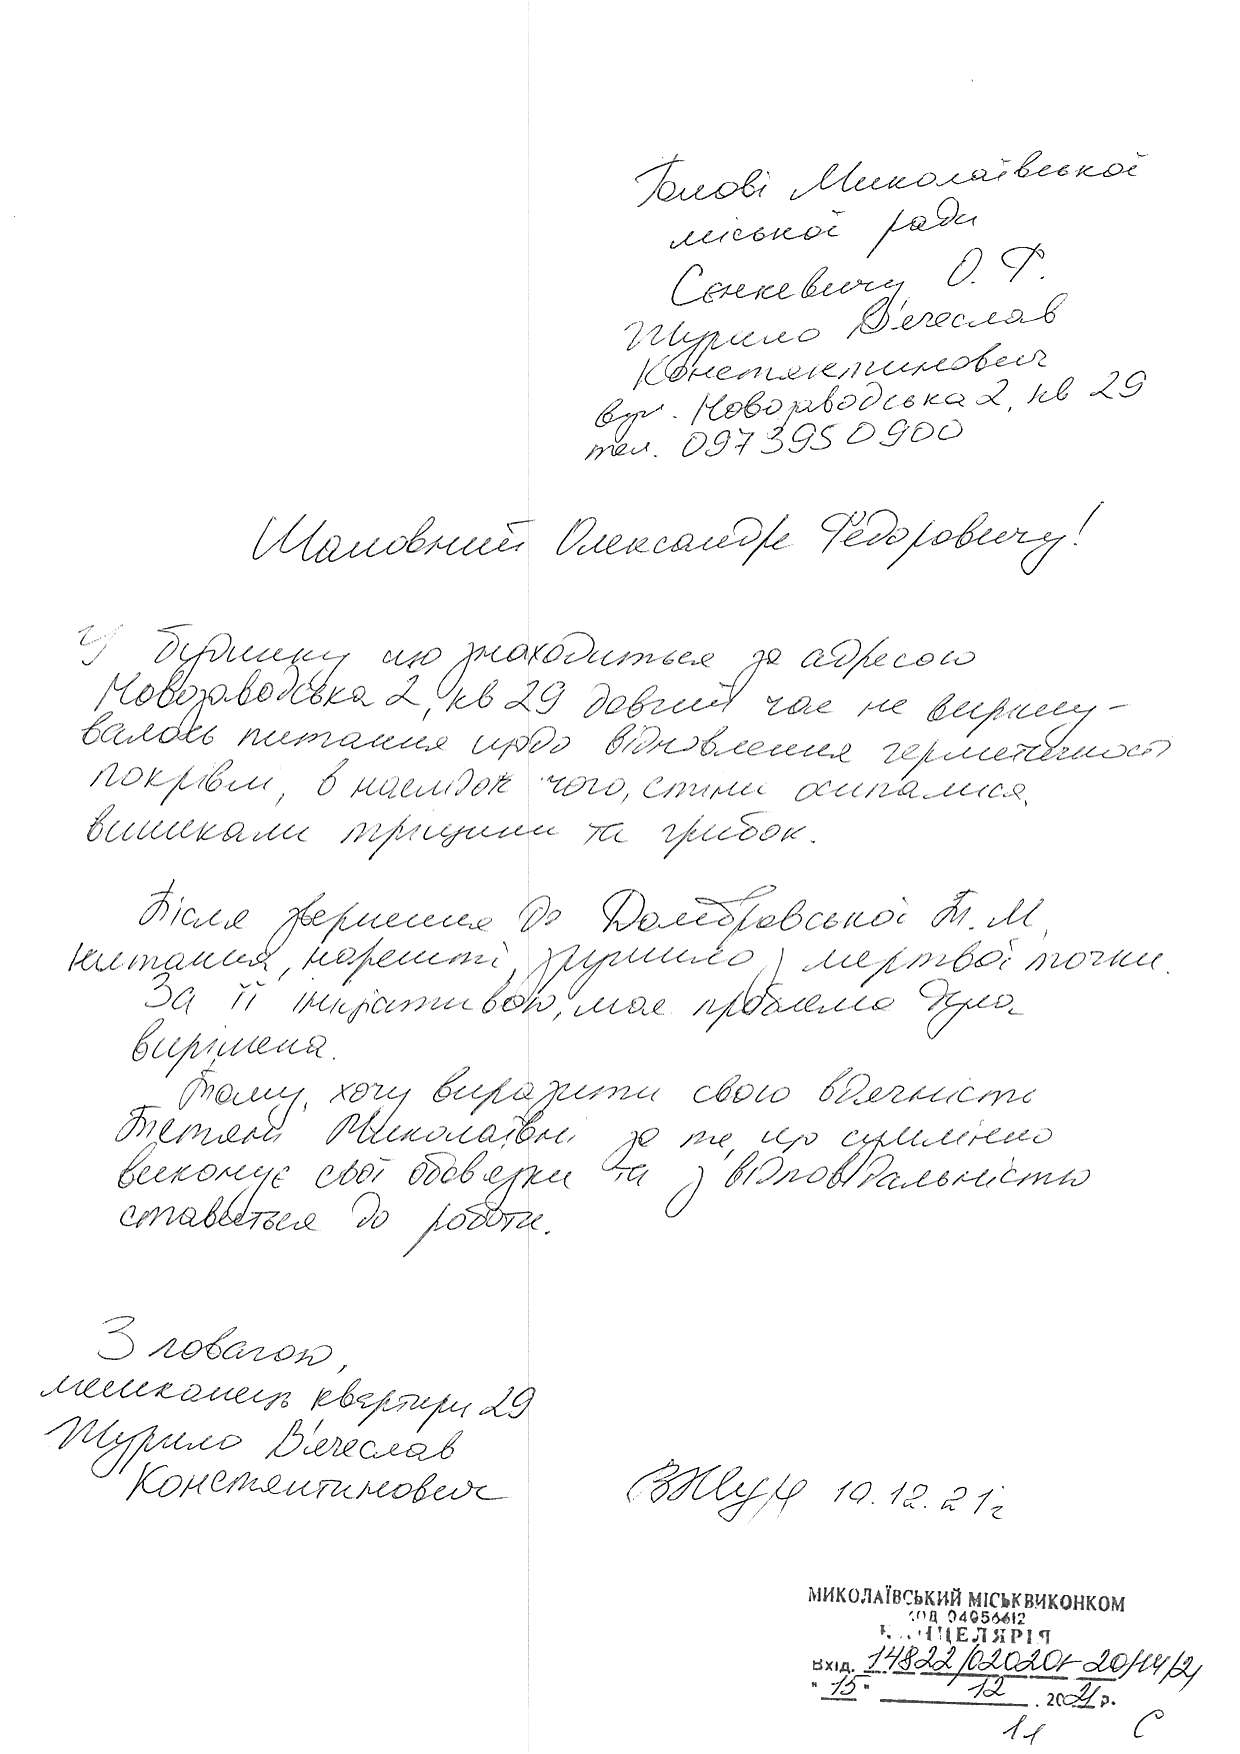 Голові Миколаївської
міської ради
Сєнкевичу О. Ф.
Журило В'ячеслав
Константинович
вул. Новозаводська 2, кв 29
тел. 0973950900
Шановний Олександре Федоровичу!
У будинку що знаходиться за адресою
Новозаводська 2, кв 29 довгий час не вирішу-
валось питання щодо відновлення герметичності
покрівлі, в наслідок чого, стіни осипалися,
виникали тріщини та грибок.
Після звернення до Домбровської Т. М
питання, нарешті, зрушило з мертвої точки.
За її ініціативою, моя проблема була
вирішена.
Тому, хочу виразити свою вдячність
Тетяні Миколаївні за те, що сумлінно
виконує свої обов'язки та з відповідальністю
ставиться до роботи.
З повагою,
мешканець квартири 29
Журило В'ячеслав
Константинович
10.12.21г
МИКОЛАЇВСЬКИЙ МІСЬКВИКОНКОМ
КОД 04056612
КАНЦЕЛЯРІЯ
Вхід. 14822/020201-20/14/21
"15" 12 . 2021 р.
11 С